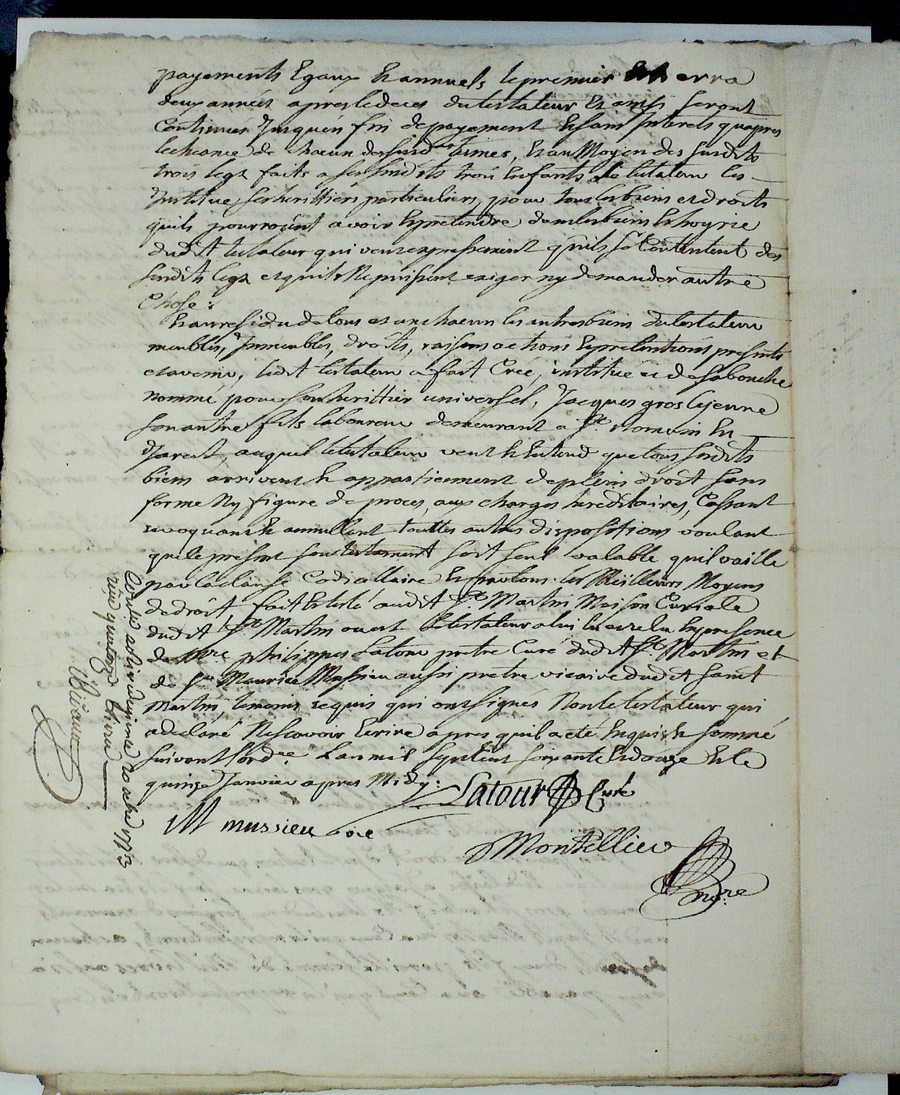 payements Egaux Et annuels le premier Echerra
deux années apres le deces du testateur Et ainsi seront
Continués Jusquen fin de payement Et sans Interets quapres
lecheance de chacun desusdits termes, Et au Moyen des susdits
trois legz faits a sesdits trois Enfants le testateur les
Institue ses heritiers particuliers pour tous les biens et droits
quils pourroint avoir Et pretendre dans les biens Et hoyrie
dudit testateur qui veut expressement quils se Contentent des
susdits legz et quils Ne puissent exiger ny demander autre
Chose :
Et au residu de tous et un chacun les autres biens du testateur
meubles, Immeubles, droits, raisons actions Et pretentions presents
et avenir, ledit testateur a fait Creé, institué et de sa bouche
nommé pour son heritier universel, Jacques gros lejeune
son autre fils laboureur demeurant a St Romain En
Jarest, auquel le testateur veut Et Entend que tous susdits
biens arrivent Et appartiennent de plein droit sans
forme Ny figure de proces, aux charges hereditaires, Cassant
revoquant Et annullant touttes autres dispositions voulant
que le present son testament soit seul valable quil vaille
par la clause Codicillaire Et par tous les Meilleurs Moyens
de droit fait Et testé audit St Martin Maison Curiale
dudit St Martin ouest le testateur a lui leu releu En presence
de Mre philippes Latour pretre Curé dudit St Martin et
de Sr Maurice Mussieu aussi pretre vicaire dudit saint
Martin temoins requis qui ont signés Non le testateur qui
a declaré Ne scavoir Ecrire apres quil a eté Enquis Et sommé
suivant lordce Lan mil sept cent soixante Et douze Et le
quinze Janvier apres Midy :
Latour Curé
M mussieu vre
Montellier
Nore
1773